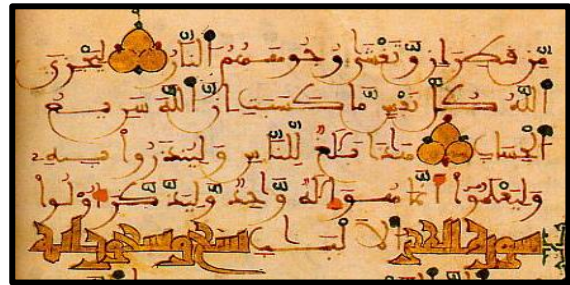 مِّن قَطِرَانٍ وَّتَغْشَى وُجُوهَهُمُ النَّارُ لِيَجْزِيَ
اَللَّهُ كُلَّ نَفْسٍ مَّا كَسَبَتِ اِنَّ اَللَّهَ سَرِيعُ
اُلْحِسَابِ هَذَا بَلَغٌ لِّلنَّاسِ وَلِيُنذَرُواْ بِهِ
وَلِيَعْلَمُواْ أَنَّمَا هُوَ إِلَهٌ وَّاحِدٌ وَّلِيَذَّكَّرَ أُوْلُواْ
سورة الحجر اَلاَلْبَـبِ تسع وتسعون اية